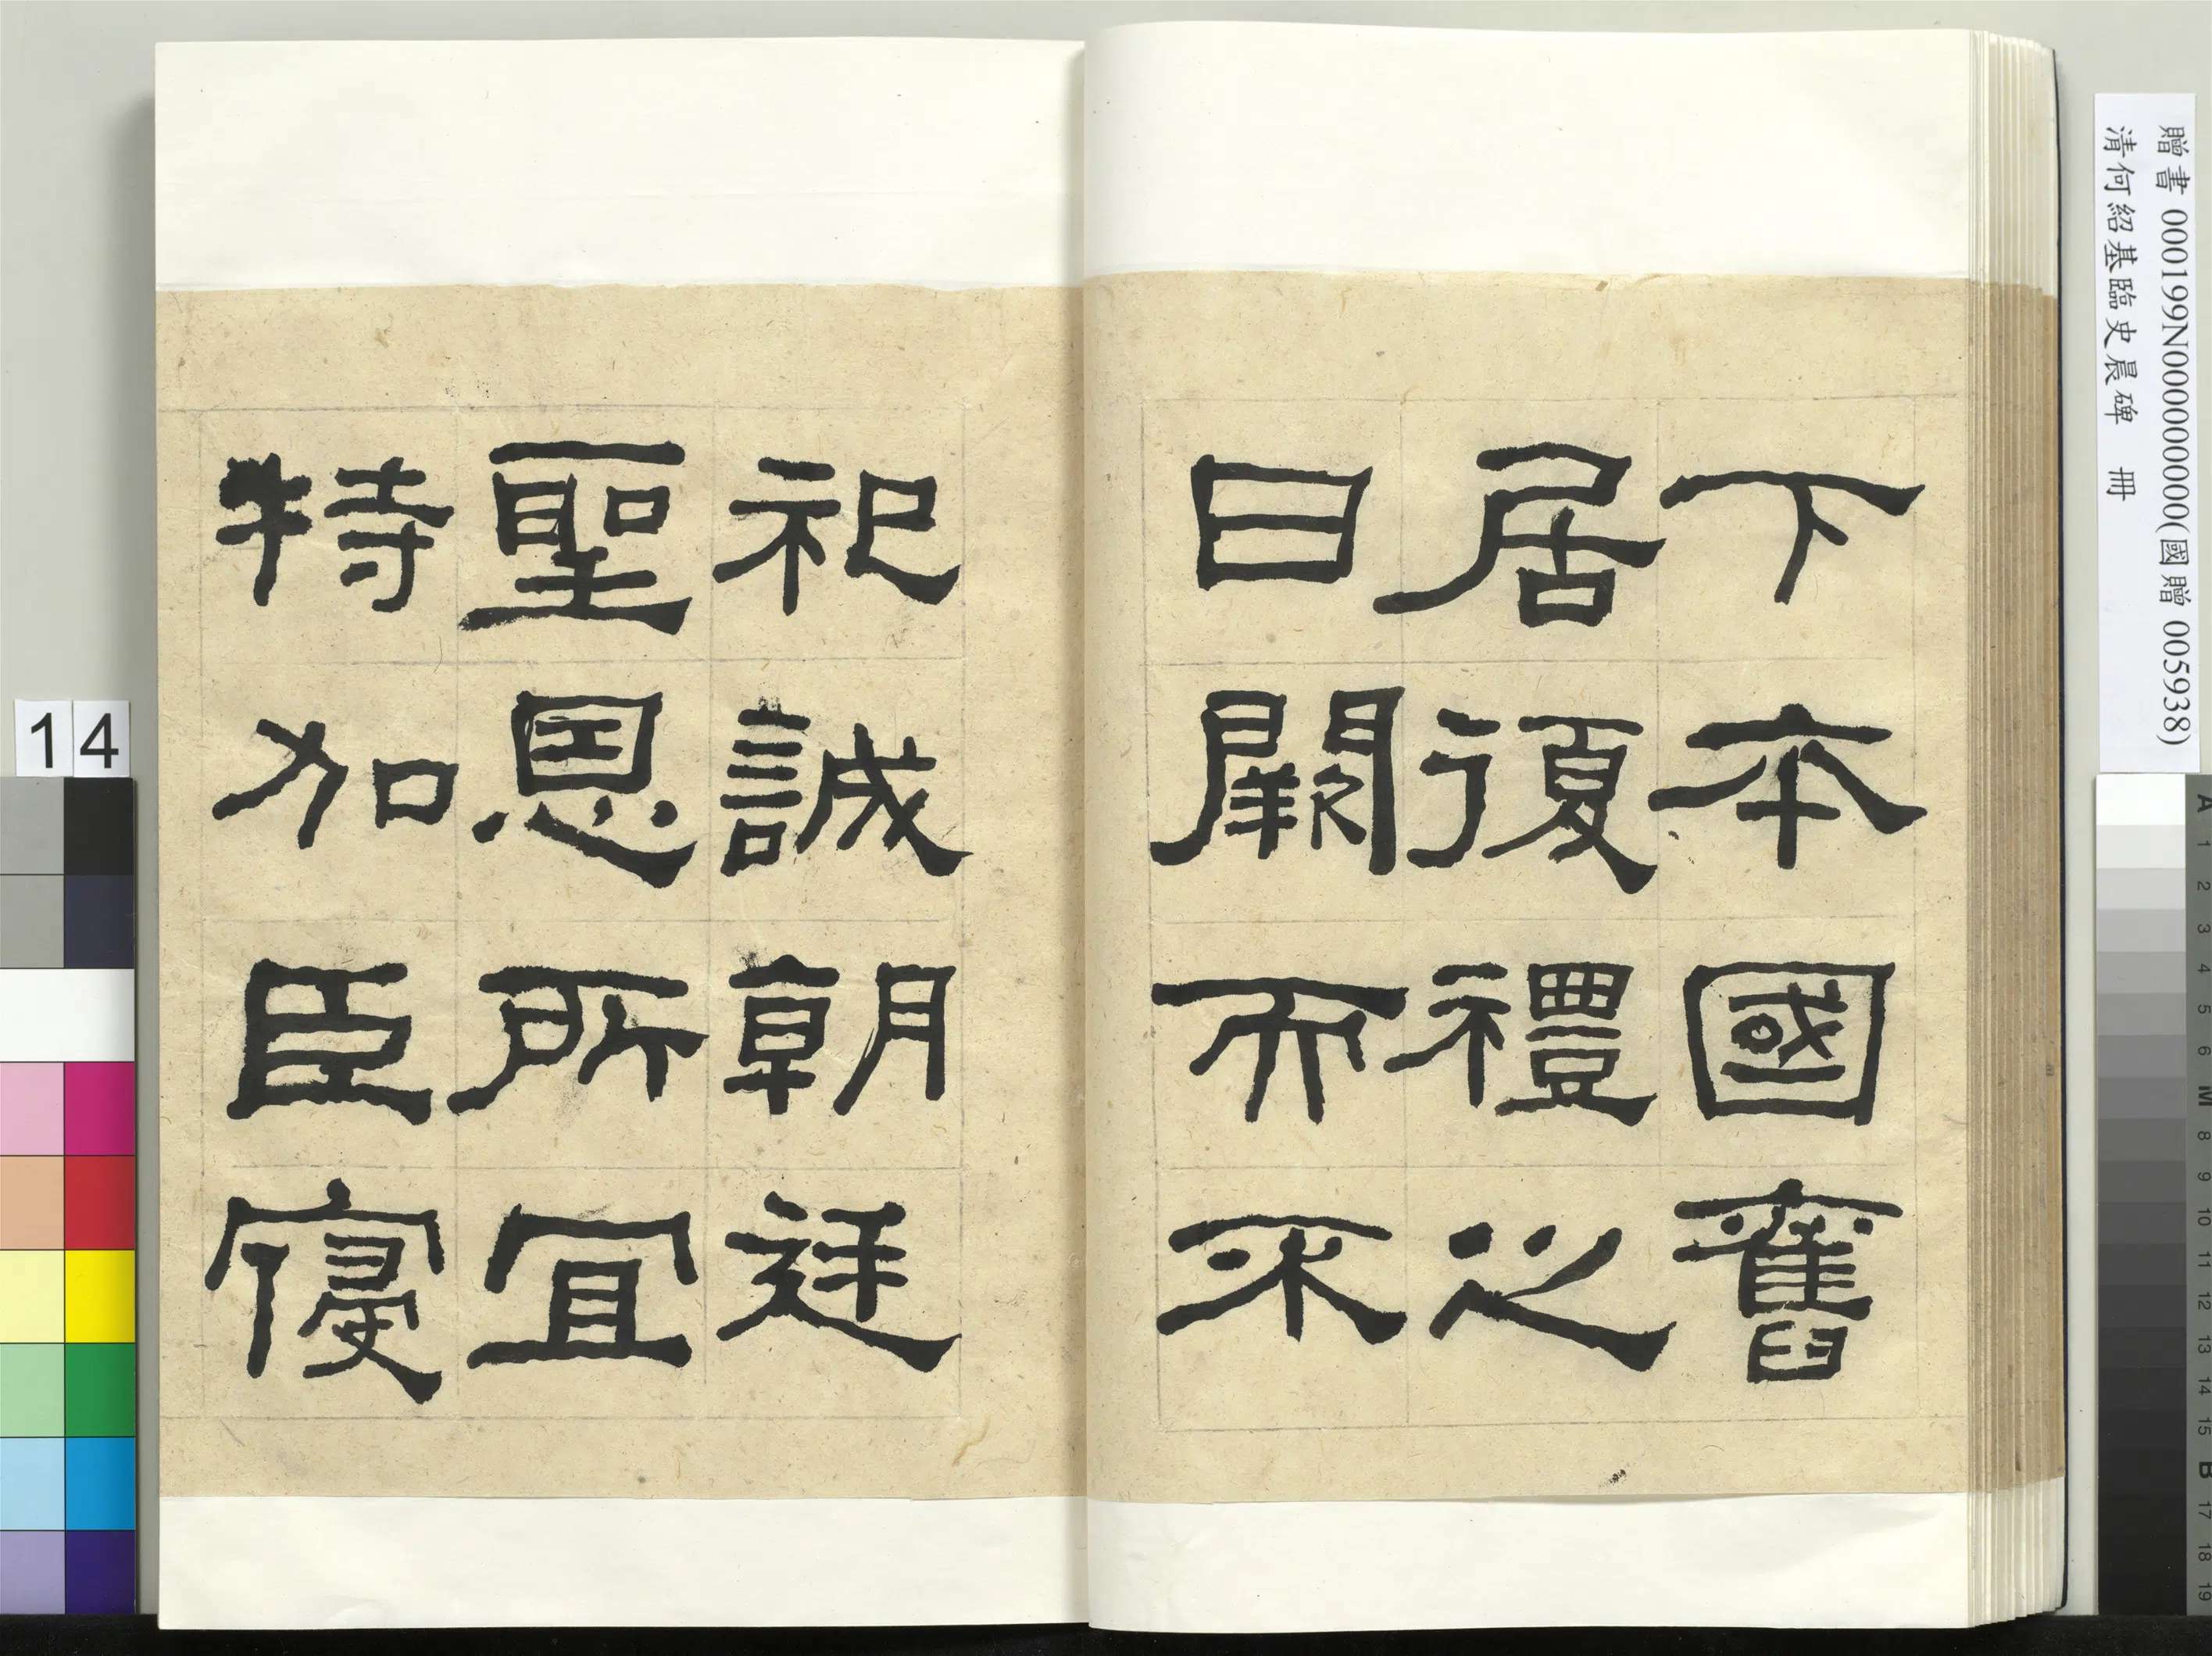 下本國舊
居復禮之
日闕而不
祀誠朝廷
聖恩所宜
特加臣寢
贈書 000199N000000000(國贈 005938)
清何紹基臨史晨碑 冊
14
A 1 2 3 4 5 6 M 8 9 10 11 12 13 14 15 B 17 18 19